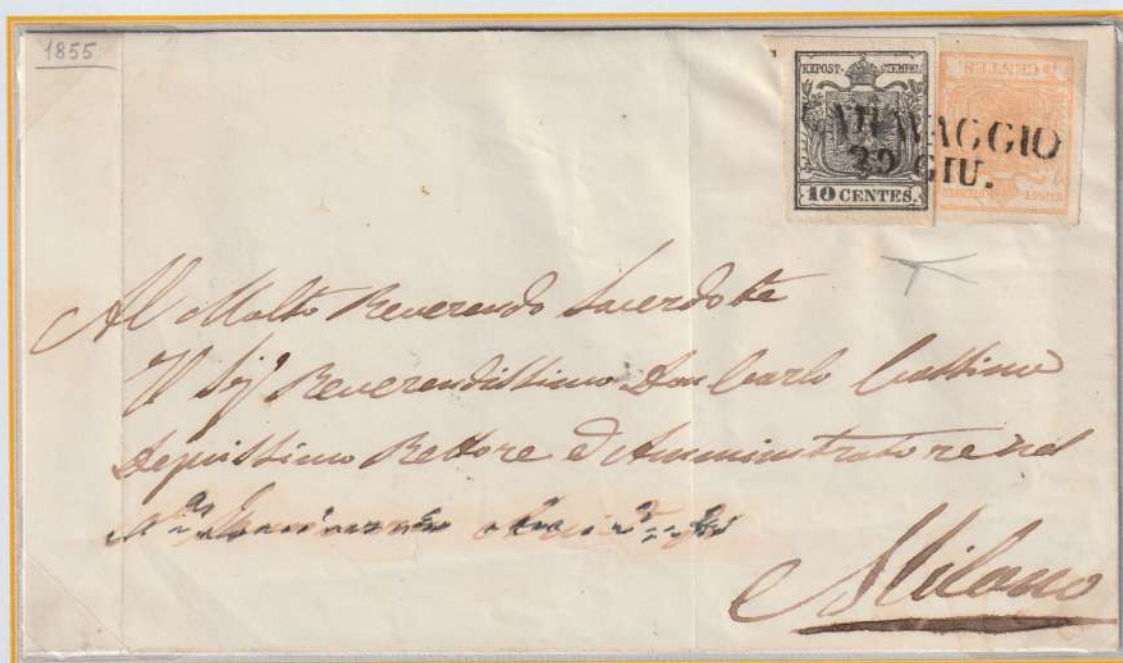 1855
KKPOST-STEMPEL
10 CENTES.
5 CENTES
CARAVAGGIO
29 GIU.
Al Molto Reverendo Sacerdote
Il Sigr Reverendissimo Don Carlo
Degnissimo Rettore ed Amministratore nel
Milano